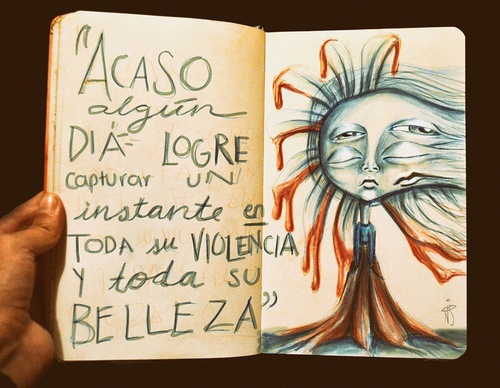 "ACASO
algún
DIA LOGRE
capturar UN
instante en
TODA su VIOLENCIA
Y toda su
BELLEZA"